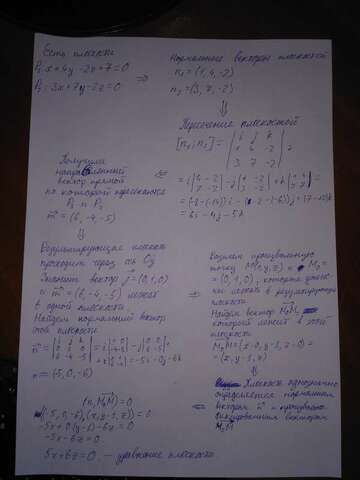 Есть плоскости
P₁: x+4y-2z+7=0
P₂: 3x+7y-2z=0
⇒
Нормальные векторы плоскостей
n₁=(1,4,-2)
n₂=(3,7,-2)
⇓
Пересечение плоскостей
[n₁; n₂] = | i j k |
| 1 4 -2 |
| 3 7 -2 | =
= i | 4 -2 | - j | 1 -2 | + k | 1 4 |
| 7 -2 | | 3 -2 | | 3 7 | =
= (-8-(-14))i - (-2-(-6))j + (7-12)k
= 6i - 4j - 5k
⇐
Получили
направленный
вектор прямой
по которой пересекаются
P₁ и P₂
m⃗ = (6,-4,-5)
⇓
Результирующая плоскость
проходит через ось Oy
Значит вектор j⃗=(0,1,0)
и m⃗=(6,-4,-5) лежат
в одной плоскости
Найдём нормальный вектор
этой плоскости
= (-5,0,-6)
⇒
Возьмём произвольную
точку M(x,y,z) и M₀=
= (0,1,0), которая
лежит в результирующей
плоскости
Найдём вектор M₀M,
который лежит в этой
плоскости
M₀M=(x-0,y-1,z-0)=
=(x,y-1,z)
⇓
Плоскость однозначно
определяется нормальным
вектором n⃗ и
вектором
M₀M
⇐
(n, M₀M)=0
(-5,0,-6)(x,y-1,z)=0
-5x+0(y-1)-6z=0
-5x-6z=0
5x+6z=0 — уравнение плоскости